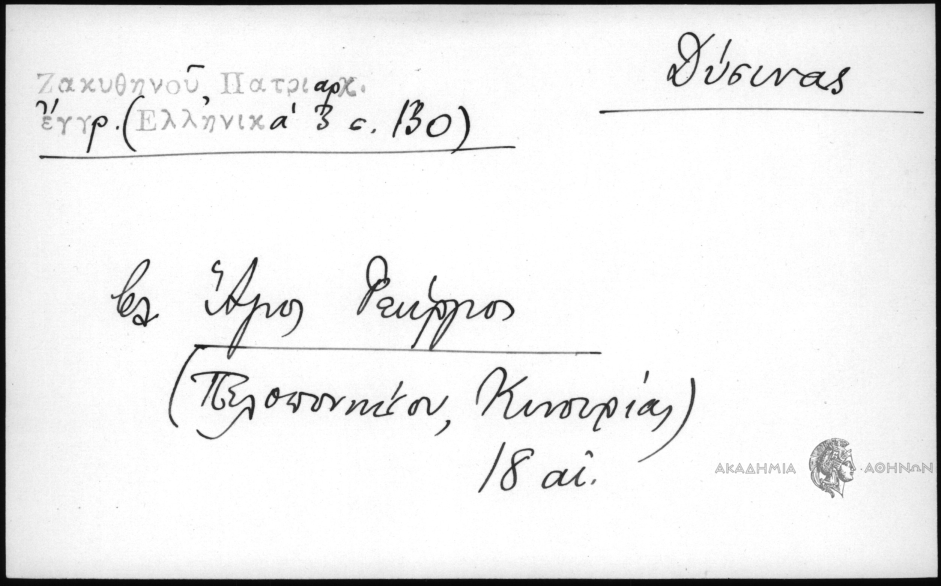 Ζακυθηνοῦ Πατριαρχ.
ἔγγρ. (Ἑλληνικά 3 σ. 130)
Δύσινας
βλ Ἅγιος Γεώργιος
(Πελοποννήσου, Κυνουρίας)
18 αἰ.
ΑΚΑΔΗΜΙΑ ΑΘΗΝΩΝ